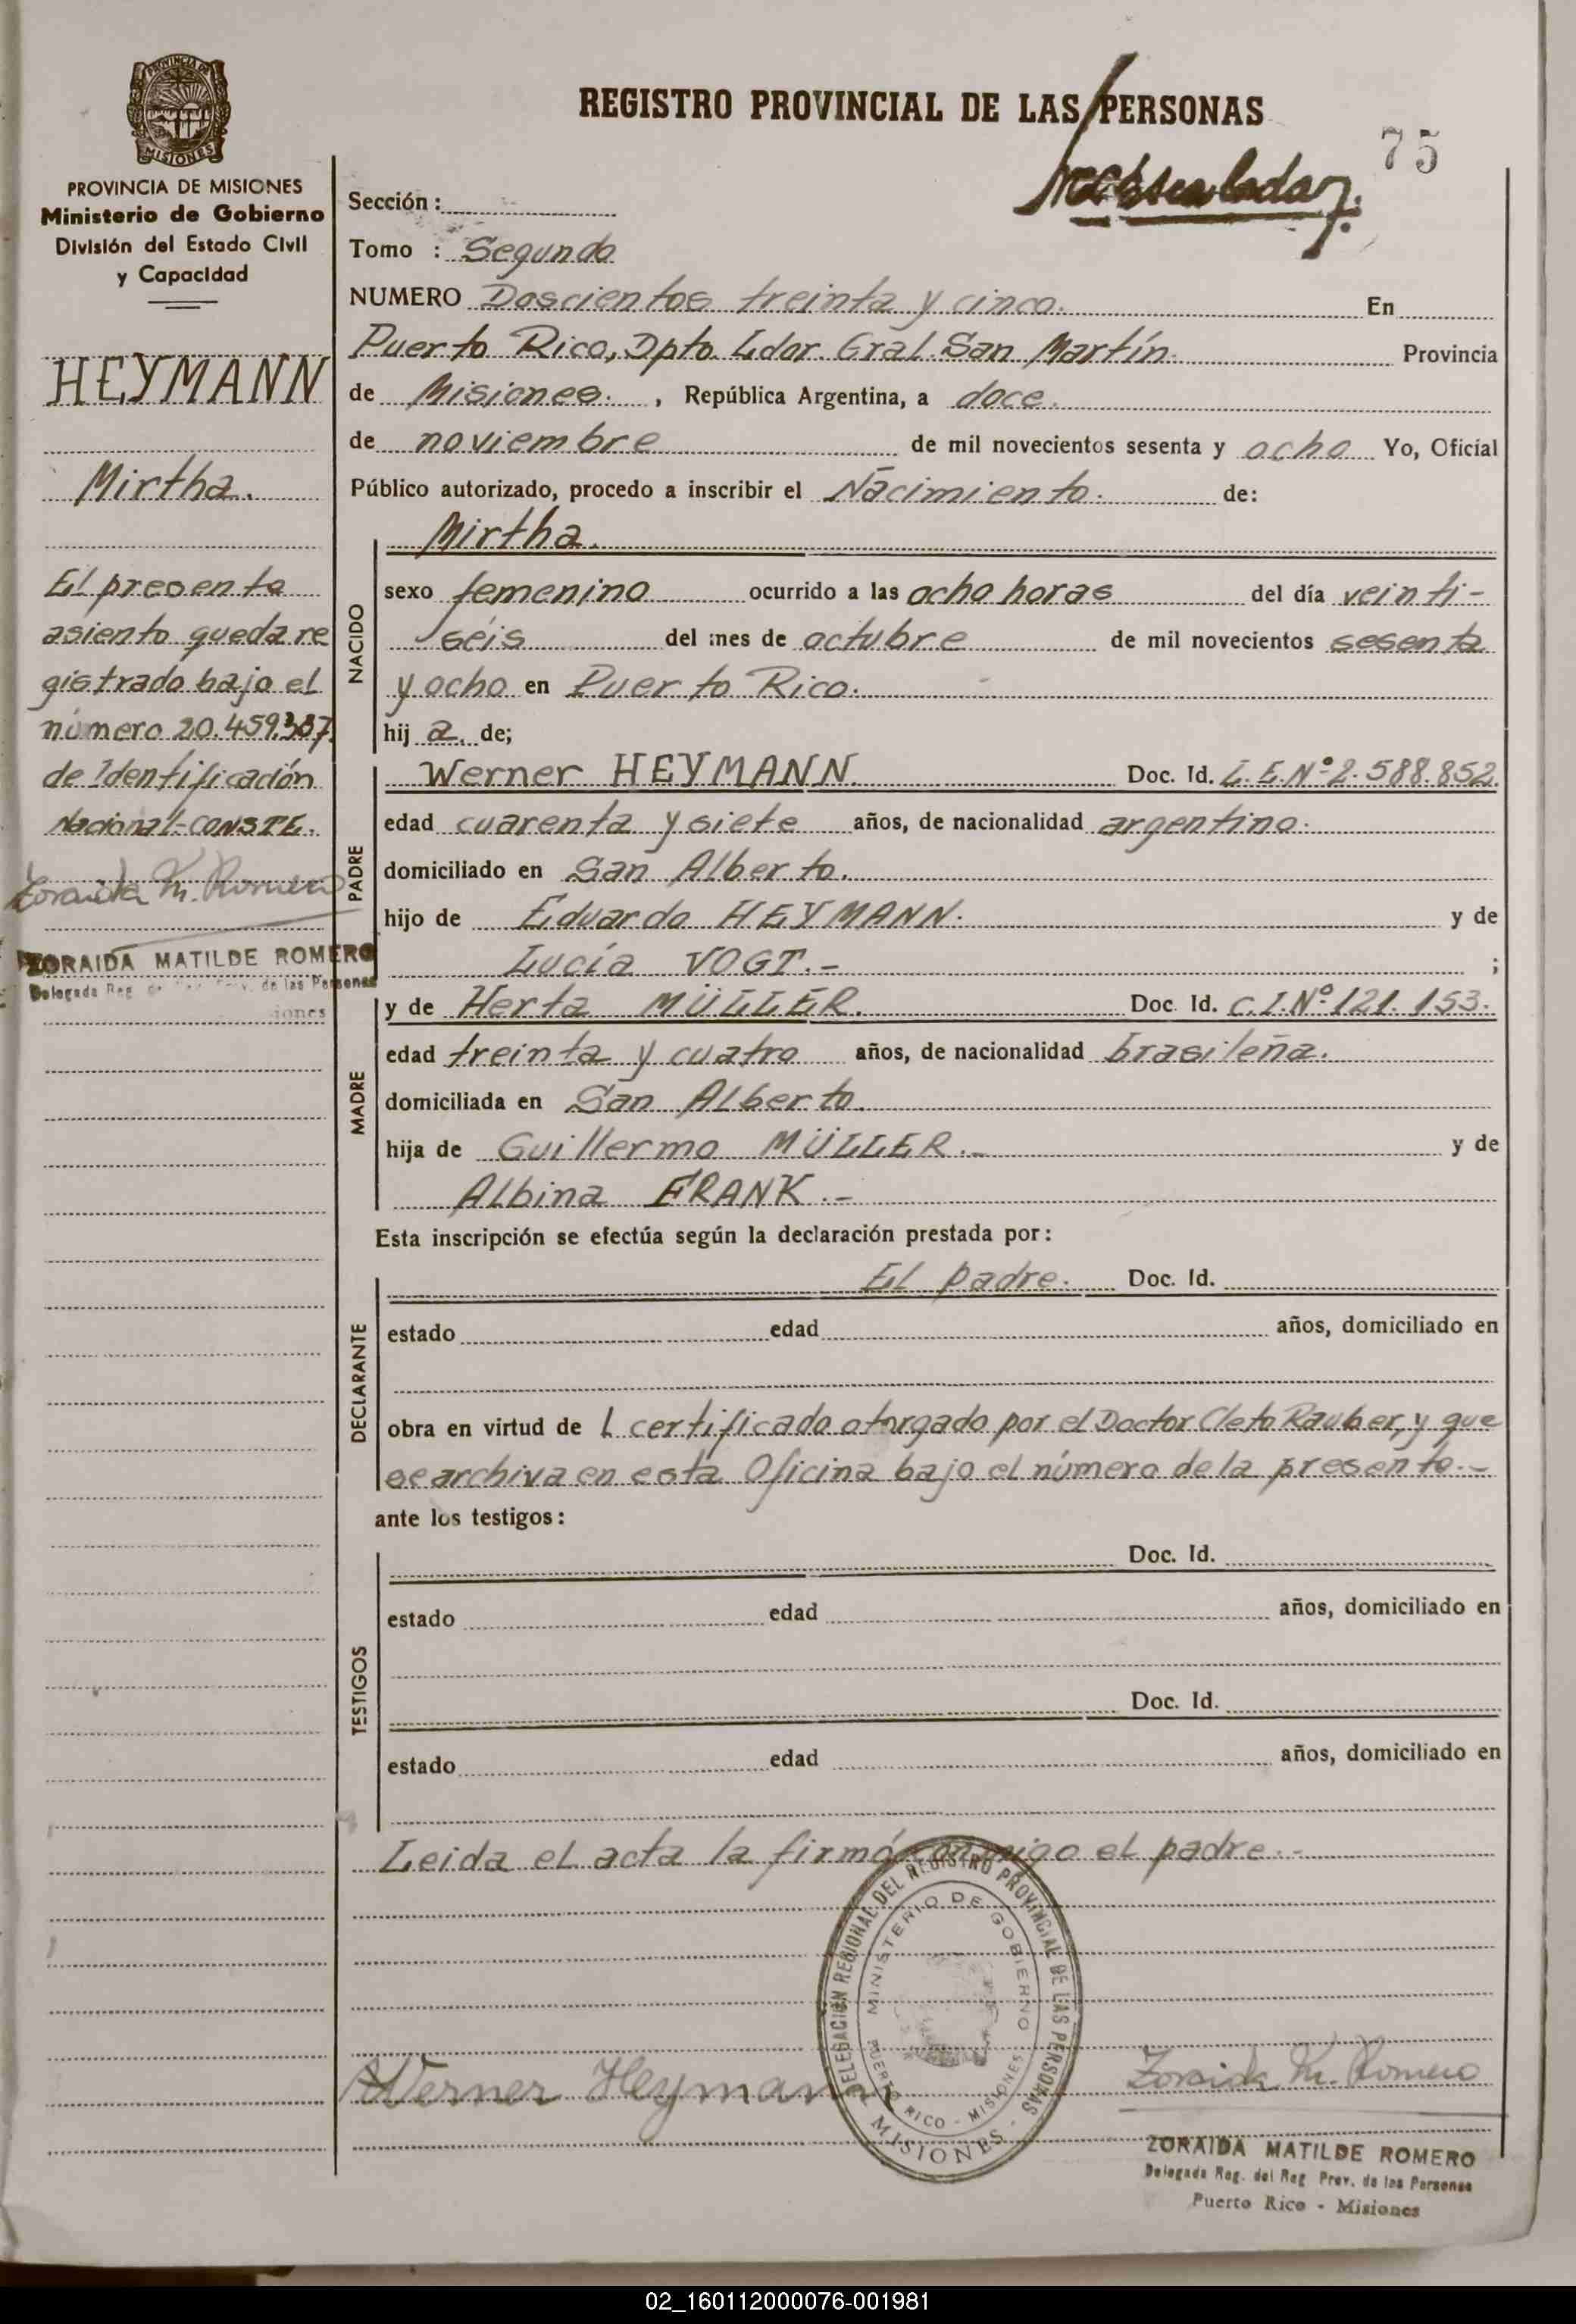 REGISTRO PROVINCIAL DE LAS PERSONAS
75
PROVINCIA DE MISIONES
Ministerio de Gobierno
División del Estado Civil
y Capacidad
HEYMANN
Mirtha.
El presente
asiento queda re
gistrado bajo el
número 20.459.387.
de Identificación
Nacional-CONSTE.
Zoraida M. Romero
ZORAIDA MATILDE ROMERO
Delegada Reg. de las Personas
Sección :
Tomo : Segundo
NUMERO Doscientos treinta y cinco. En
Puerto Rico, Dpto. Ldor. Gral. San Martín. Provincia
de Misiones. , República Argentina, a doce.
de noviembre de mil novecientos sesenta y ocho Yo, Oficial
Público autorizado, procedo a inscribir el Nacimiento. de:
Mirtha.
NACIDO
sexo femenino ocurrido a las ocho horas del día veinti-
seis del mes de octubre de mil novecientos sesenta
y ocho en Puerto Rico.
hij a. de;
PADRE
Werner HEYMANN. Doc. Id. L.E.Nº 2.588.852.
edad cuarenta y siete años, de nacionalidad argentino.
domiciliado en San Alberto.
hijo de Eduardo HEYMANN. y de
Lucía VOGT.- ;
MADRE
y de Herta MÜLLER. Doc. Id. C.I.Nº 121.153.
edad treinta y cuatro años, de nacionalidad brasileña.
domiciliada en San Alberto.
hija de Guillermo MÜLLER.- y de
Albina FRANK.-
Esta inscripción se efectúa según la declaración prestada por:
DECLARANTE
El padre. Doc. Id.
estado edad años, domiciliado en
obra en virtud de l certificado otorgado por el Doctor Cleto Rauber, y que
se archiva en esta Oficina bajo el número de la presente.-
ante los testigos:
TESTIGOS
Doc. Id.
estado edad años, domiciliado en
Doc. Id.
estado edad años, domiciliado en
Leida el acta la firmó conmigo el padre.-
DELEGACIÓN REGIONAL DEL REGISTRO PROVINCIAL DE LAS PERSONAS
MINISTERIO DE GOBIERNO
PUERTO RICO - MISIONES
MISIONES
Werner Heymann
Zoraida M. Romero
ZORAIDA MATILDE ROMERO
Delegada Reg. del Reg Prov. de las Personas
Puerto Rico - Misiones
02_160112000076-001981